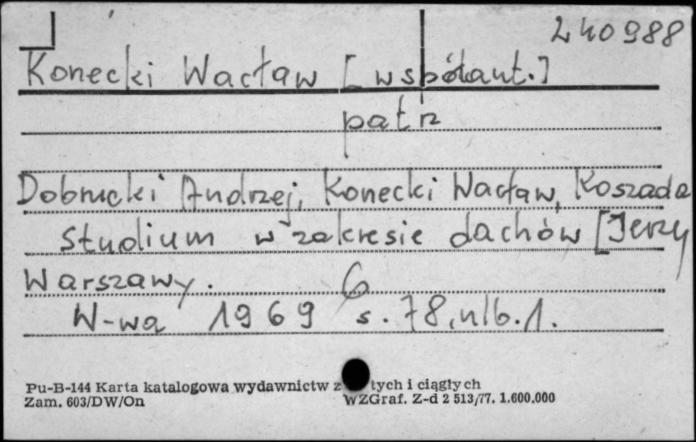 240988
Konecki Wacław [współaut.]
patrz
Dobrucki Andrzej, Konecki Wacław, Koszada
Studium w zakresie dachów [Jerzy
Warszawy.
W-wa 1969 s. 78, nlb. 1.
Pu-B-144 Karta katalogowa wydawnictw z tych i ciągłych
Zam. 603/DW/On WZGraf. Z-d 2 513/77. 1.600.000